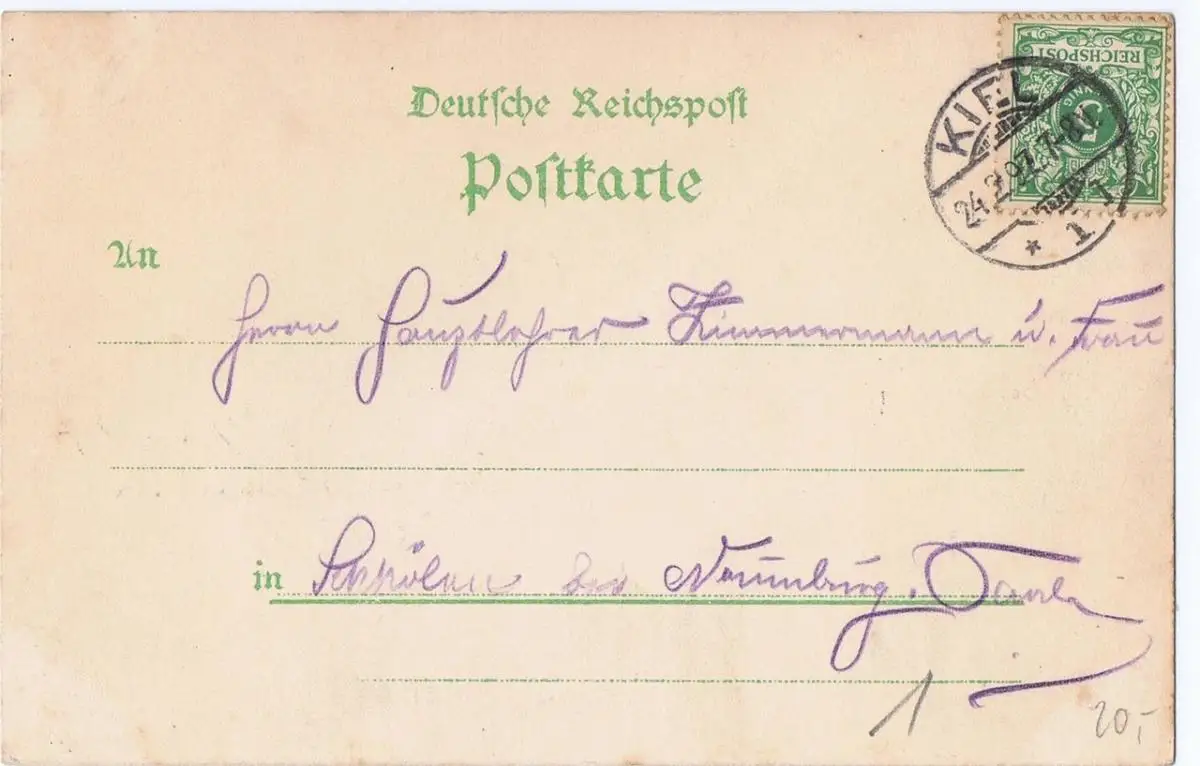 REICHSPOST
5
PFENNIG
KIEL
24.2.97. 7-8V.
* 1 1
Deutsche Reichspost
Postkarte
An
Herrn Hauptlehrer Zimmermann u. Frau
in Schkölen bei Naumburg.
1
20,-